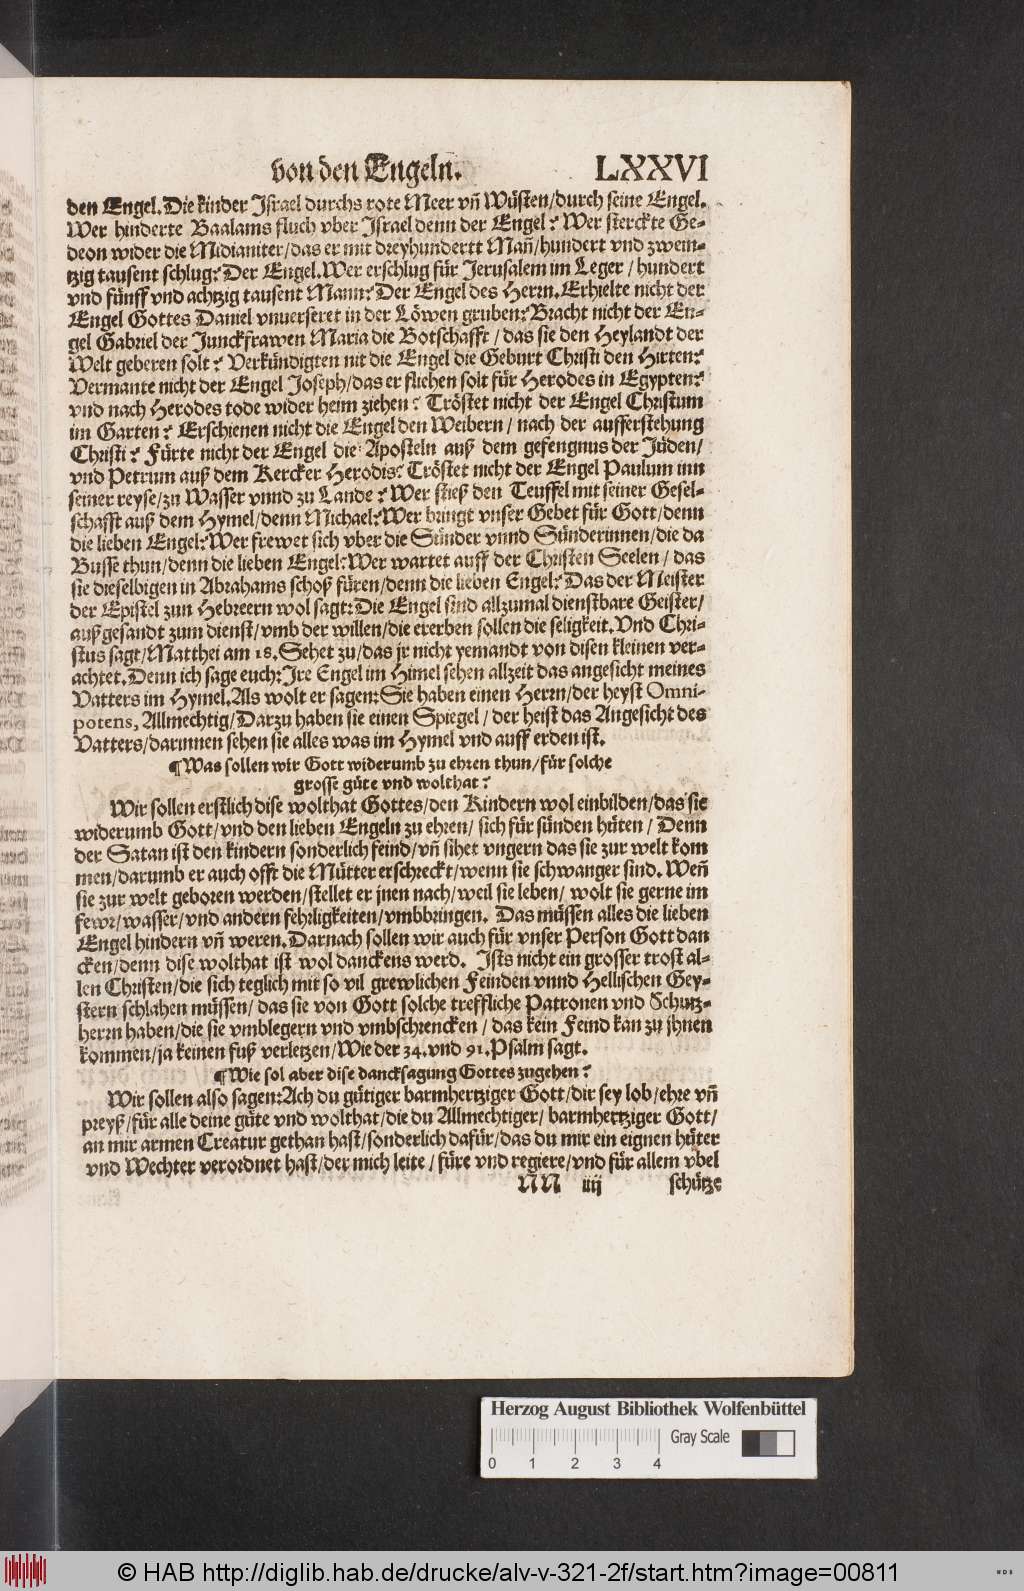 von den Engeln. LXXVI
den Engel. Die kinder Israel durchs rote Meer vñ Wüsten/durch seine Engel.
Wer hinderte Baalams fluch vber Israel denn der Engel? Wer sterckte Ge-
deon wider die Midianiter/das er mit dreyhundertt Mañ/hundert vnd zwein-
tzig tausent schlug? Der Engel. Wer erschlug für Jerusalem im Leger / hundert
vnd fünff vnd achtzig tausent Mann? Der Engel des Herrn. Erhielte nicht der
Engel Gottes Daniel vnuerseret in der Löwen gruben? Bracht nicht der En-
gel Gabriel der Junckfrawen Maria die Botschafft / das sie den Heylandt der
Welt geberen solt? Verkündigten nit die Engel die Geburt Christi den Hirten?
Vermante nicht der Engel Joseph/das er fliehen solt für Herodes in Egypten?
vnd nach Herodes tode wider heim ziehen? Tröstet nicht der Engel Christum
im Garten? Erschienen nicht die Engel den Weibern / nach der aufferstehung
Christi? Fürte nicht der Engel die Aposteln auß dem gefengnus der Jüden/
vnd Petrum auß dem Kercker Herodis? Tröstet nicht der Engel Paulum inn
seiner reyse/zu Wasser vnnd zu Lande? Wer stieß den Teuffel mit seiner Gesel-
schafft auß dem Hymel/denn Michael? Wer bringt vnser Gebet für Gott/denn
die lieben Engel? Wer frewet sich vber die Sünder vnnd Sünderinnen/die da
Busse thun/denn die lieben Engel? Wer wartet auff der Christen Seelen / das
sie dieselbigen in Abrahams schoß füren/denn die lieben Engel? Das der Meister
der Epistel zun Hebreern wol sagt: Die Engel sind allzumal dienstbare Geister/
außgesandt zum dienst/vmb der willen/die ererben sollen die seligkeit. Vnd Chri-
stus sagt/Matthei am 18. Sehet zu/das jr nicht yemandt von disen kleinen ver-
achtet. Denn ich sage euch: Jre Engel im Himel sehen allzeit das angesicht meines
Vatters im Hymel. Als wolt er sagen: Sie haben einen Herrn/der heyst Omni-
potens, Allmechtig/Darzu haben sie einen Spiegel / der heist das Angesicht des
Vatters/darinnen sehen sie alles was im Hymel vnd auff erden ist.
¶Was sollen wir Gott widerumb zu ehren thun/für solche
grosse güte vnd wolthat?
Wir sollen erstlich dise wolthat Gottes/den Kindern wol einbilden/das sie
widerumb Gott/vnd den lieben Engeln zu ehren/ sich für sünden hüten / Denn
der Satan ist den kindern sonderlich feind/vñ sihet vngern das sie zur welt kom
men/darumb er auch offt die Mütter erschreckt/wenn sie schwanger sind. Weñ
sie zur welt geboren werden/stellet er jnen nach/weil sie leben/ wolt sie gerne im
fewr/wasser/vnd andern fehrligkeiten/vmbbringen. Das müssen alles die lieben
Engel hindern vñ weren. Darnach sollen wir auch für vnser Person Gott dan
cken/denn dise wolthat ist wol danckens werd. Ists nicht ein grosser trost al-
len Christen/die sich teglich mit so vil grewlichen Feinden vnnd Hellischen Gey-
stern schlahen müssen/ das sie von Gott solche treffliche Patronen vnd Schutz-
herrn haben/die sie vmblegern vnd vmbschrencken / das kein Feind kan zu jhnen
kommen/ja keinen fuß verletzen/Wie der 34. vnd 91. Psalm sagt.
¶Wie sol aber dise dancksagung Gottes zugehen?
Wir sollen also sagen: Ach du gütiger barmhertziger Gott/dir sey lob/ehre vñ
preyß/für alle deine güte vnd wolthat/die du Allmechtiger/ barmhertziger Gott/
an mir armen Creatur gethan hast/sonderlich dafür/das du mir ein eignen hüter
vnd Wechter verordnet hast/der mich leite / füre vnd regiere/vnd für allem vbel
NN iiij schütze
Herzog August Bibliothek Wolfenbüttel
Gray Scale
0 1 2 3 4
© HAB http://diglib.hab.de/drucke/alv-v-321-2f/start.htm?image=00811